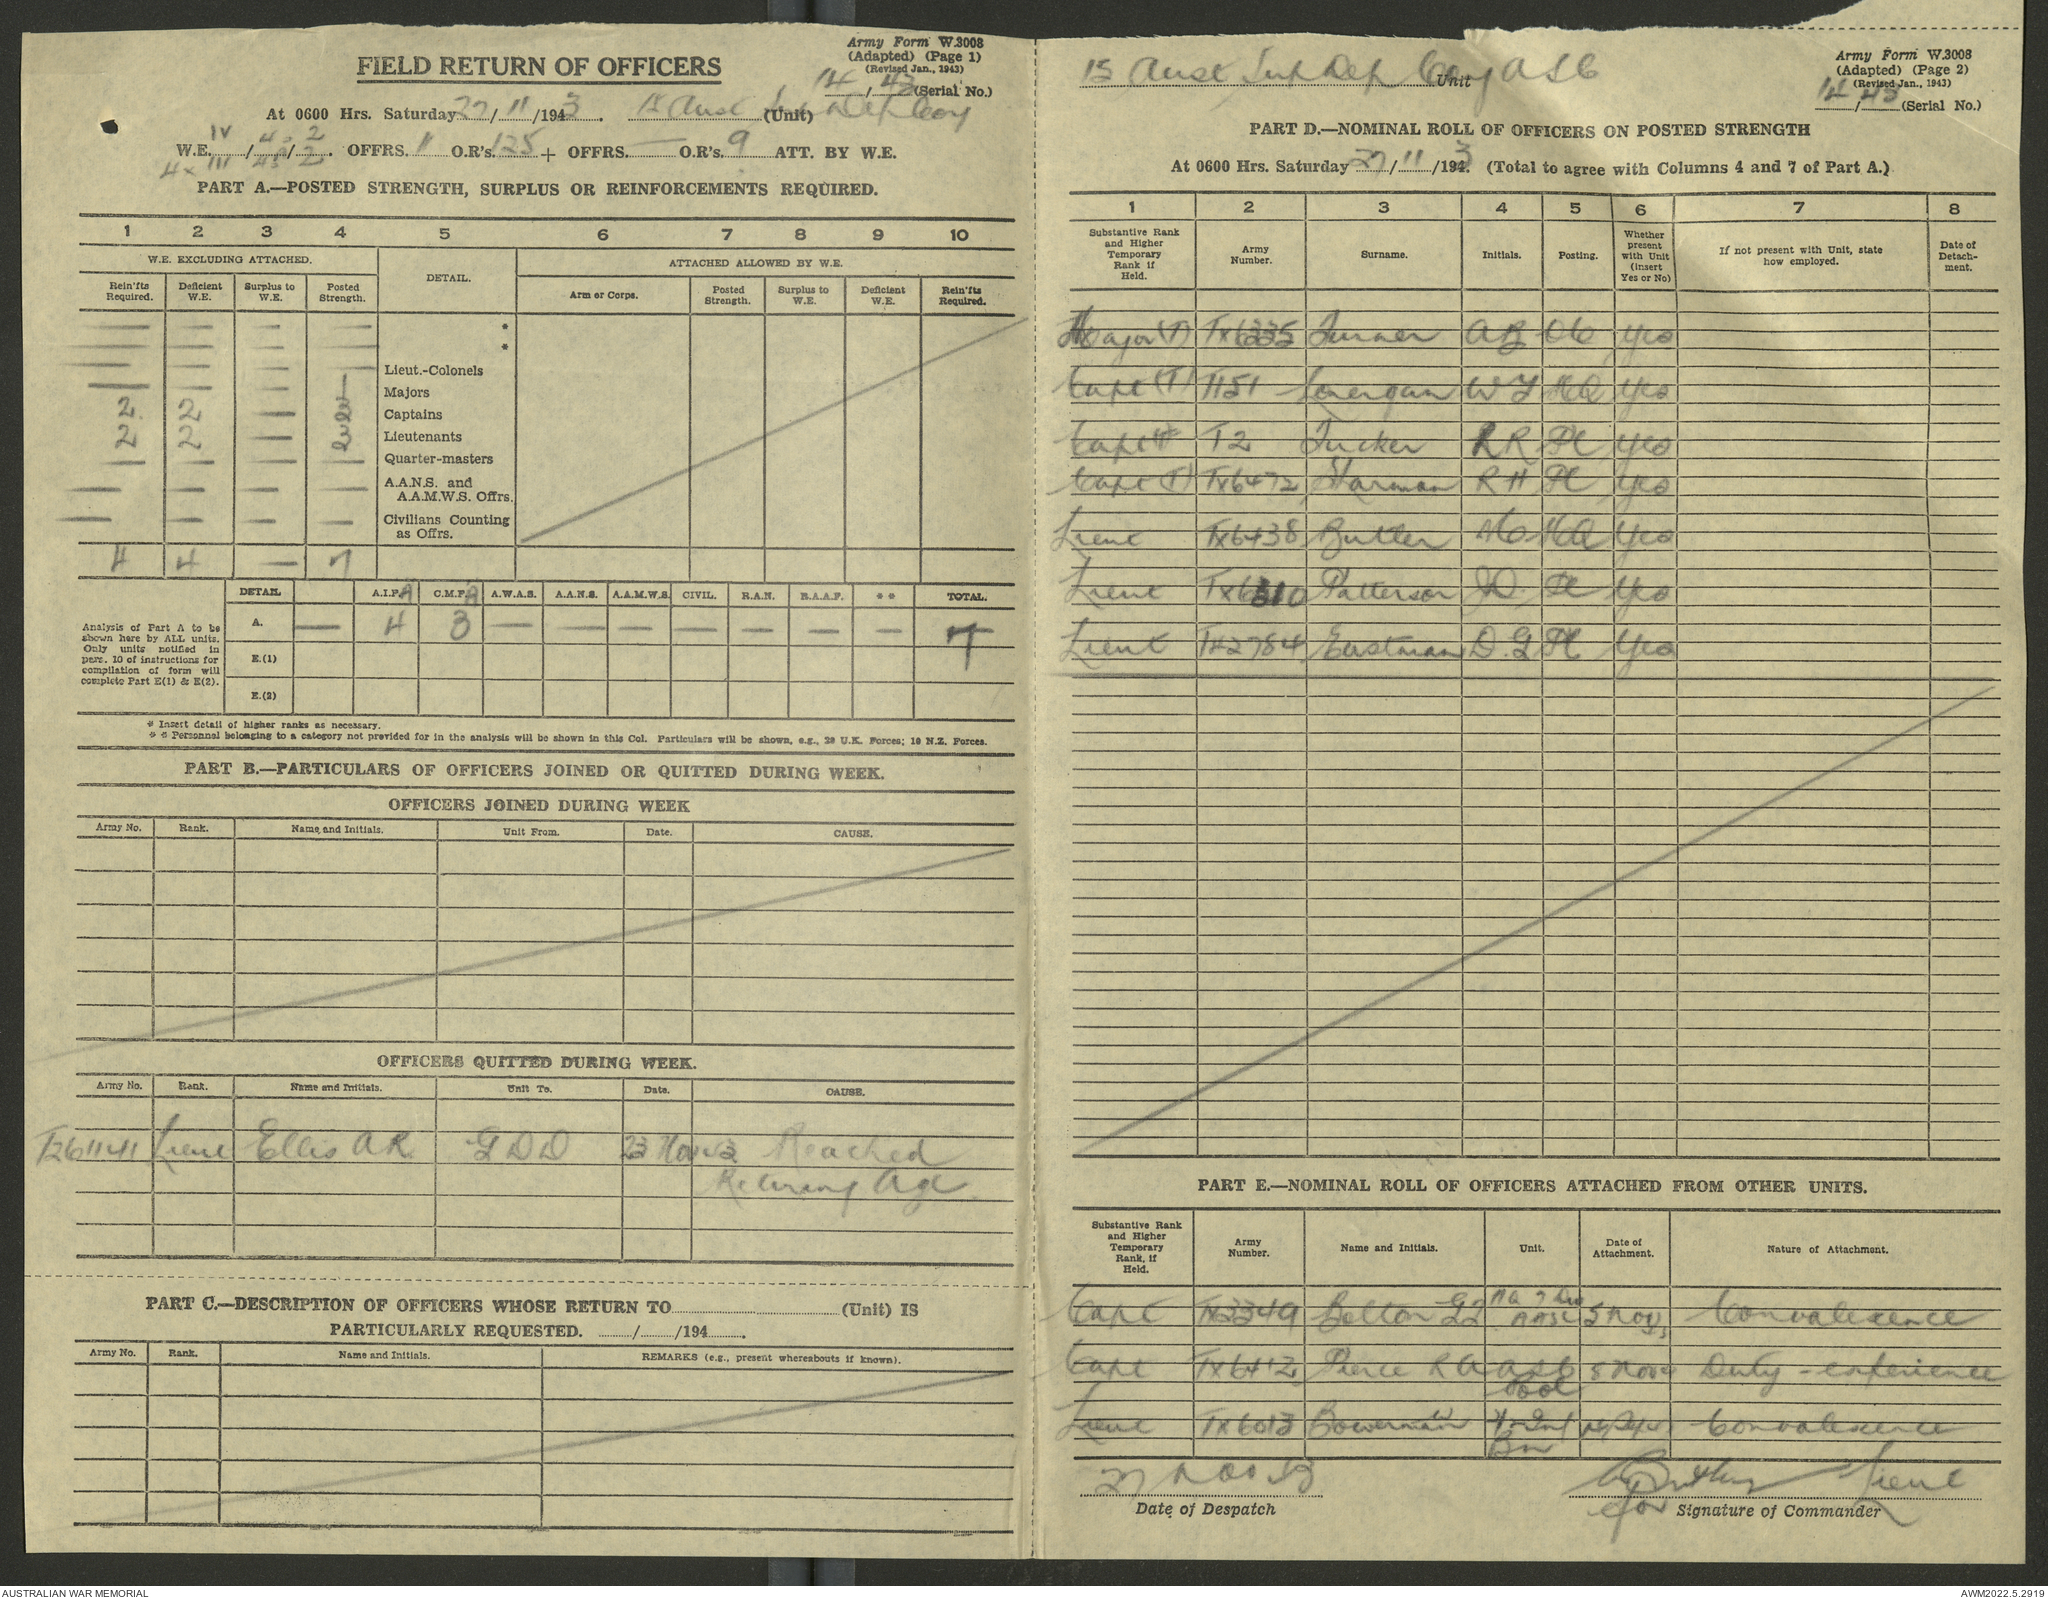 Army Form W.3008
(Adapted) (Page 1)
(Revised Jan., 1943)
14/43 (Serial No.)
FIELD RETURN OF OFFICERS
At 0600 Hrs. Saturday 27/11/1943. 15 Aust Sup Dep Coy (Unit)
W.E. IV/43/2/2. OFFRS. 11 O.R's. 125 + OFFRS. — O.R's. 9 ATT. BY W.E.
PART A.—POSTED STRENGTH, SURPLUS OR REINFORCEMENTS REQUIRED.
1 2 3 4 5 6 7 8 9 10
W.E. EXCLUDING ATTACHED. DETAIL. ATTACHED ALLOWED BY W.E.
Rein'fts Required. Deficient W.E. Surplus to W.E. Posted Strength. Arm or Corps. Posted Strength. Surplus to W.E. Deficient W.E. Rein'fts Required.
— — — — *
— — — — *
Lieut.-Colonels
— — — Majors
2 2 — Captains
2 2 — Lieutenants
— — — — Quarter-masters
— — — — A.A.N.S. and
A.A.M.W.S. Offrs.
— — — — Civilians Counting
as Offrs.
4 4 — 7
DETAIL A.I.F. C.M.F. A.W.A.S. A.A.N.S. A.A.M.W.S. CIVIL. R.A.N. R.A.A.F. ** TOTAL.
Analysis of Part A to be
shown here by ALL units.
Only units notified in
para. 10 of instructions for
compilation of form will
complete Part E(1) & E(2).
A. — 4 3 — — — — — — — 7
E.(1)
E.(2)
* Insert detail of higher ranks as necessary.
* * Personnel belonging to a category not provided for in the analysis will be shown in this Col. Particulars will be shown, e.g., 20 U.K. Forces; 10 N.Z. Forces.
PART B.—PARTICULARS OF OFFICERS JOINED OR QUITTED DURING WEEK.
OFFICERS JOINED DURING WEEK
Army No. Rank. Name and Initials. Unit From. Date. CAUSE.
OFFICERS QUITTED DURING WEEK.
Army No. Rank. Name and Initials. Unit To. Date. CAUSE.
Lieut Ellis A R. G D D 23 Nov 43 Reached
Retiring Age.
PART C.—DESCRIPTION OF OFFICERS WHOSE RETURN TO (Unit) IS
PARTICULARLY REQUESTED. / /194 .
Army No. Rank. Name and Initials. REMARKS (e.g., present whereabouts if known).
15 Aust Sup Dep Coy ASC Unit
Army Form W.3008
(Adapted) (Page 2)
(Revised Jan., 1943)
14/43 (Serial No.)
PART D.—NOMINAL ROLL OF OFFICERS ON POSTED STRENGTH
At 0600 Hrs. Saturday 27/11/1943. (Total to agree with Columns 4 and 7 of Part A.)
1 2 3 4 5 6 7 8
Substantive Rank and Higher Temporary Rank if Held. Army Number. Surname. Initials. Posting. Whether present with Unit (insert Yes or No) If not present with Unit, state how employed. Date of Detach-ment.
Major (T) Tx6335 Turner A B OC Yes
Capt (T) T151 Lonergan W J HQ Yes
Capt T2 Tucker R R Pl Yes
Capt (T) Tx6472 Sharman R H Pl Yes
Lieut Tx6438 Butler HQ Yes
Lieut Patterson Pl Yes
Lieut Eastman D. G Pl Yes
PART E.—NOMINAL ROLL OF OFFICERS ATTACHED FROM OTHER UNITS.
Substantive Rank and Higher Temporary Rank, if Held. Army Number. Name and Initials. Unit. Date of Attachment. Nature of Attachment.
Capt Bolton HQ 7 Div AASC 5 Nov Convalescence
Capt Tx6412 Pierce R A ASC Pool 5 Nov Duty - experience
Lieut Tx6013 Bowerman Bn Convalescence
27 Nov 43
Date of Despatch
Lieut
for Signature of Commander
AUSTRALIAN WAR MEMORIAL
AWM2022.5.2919